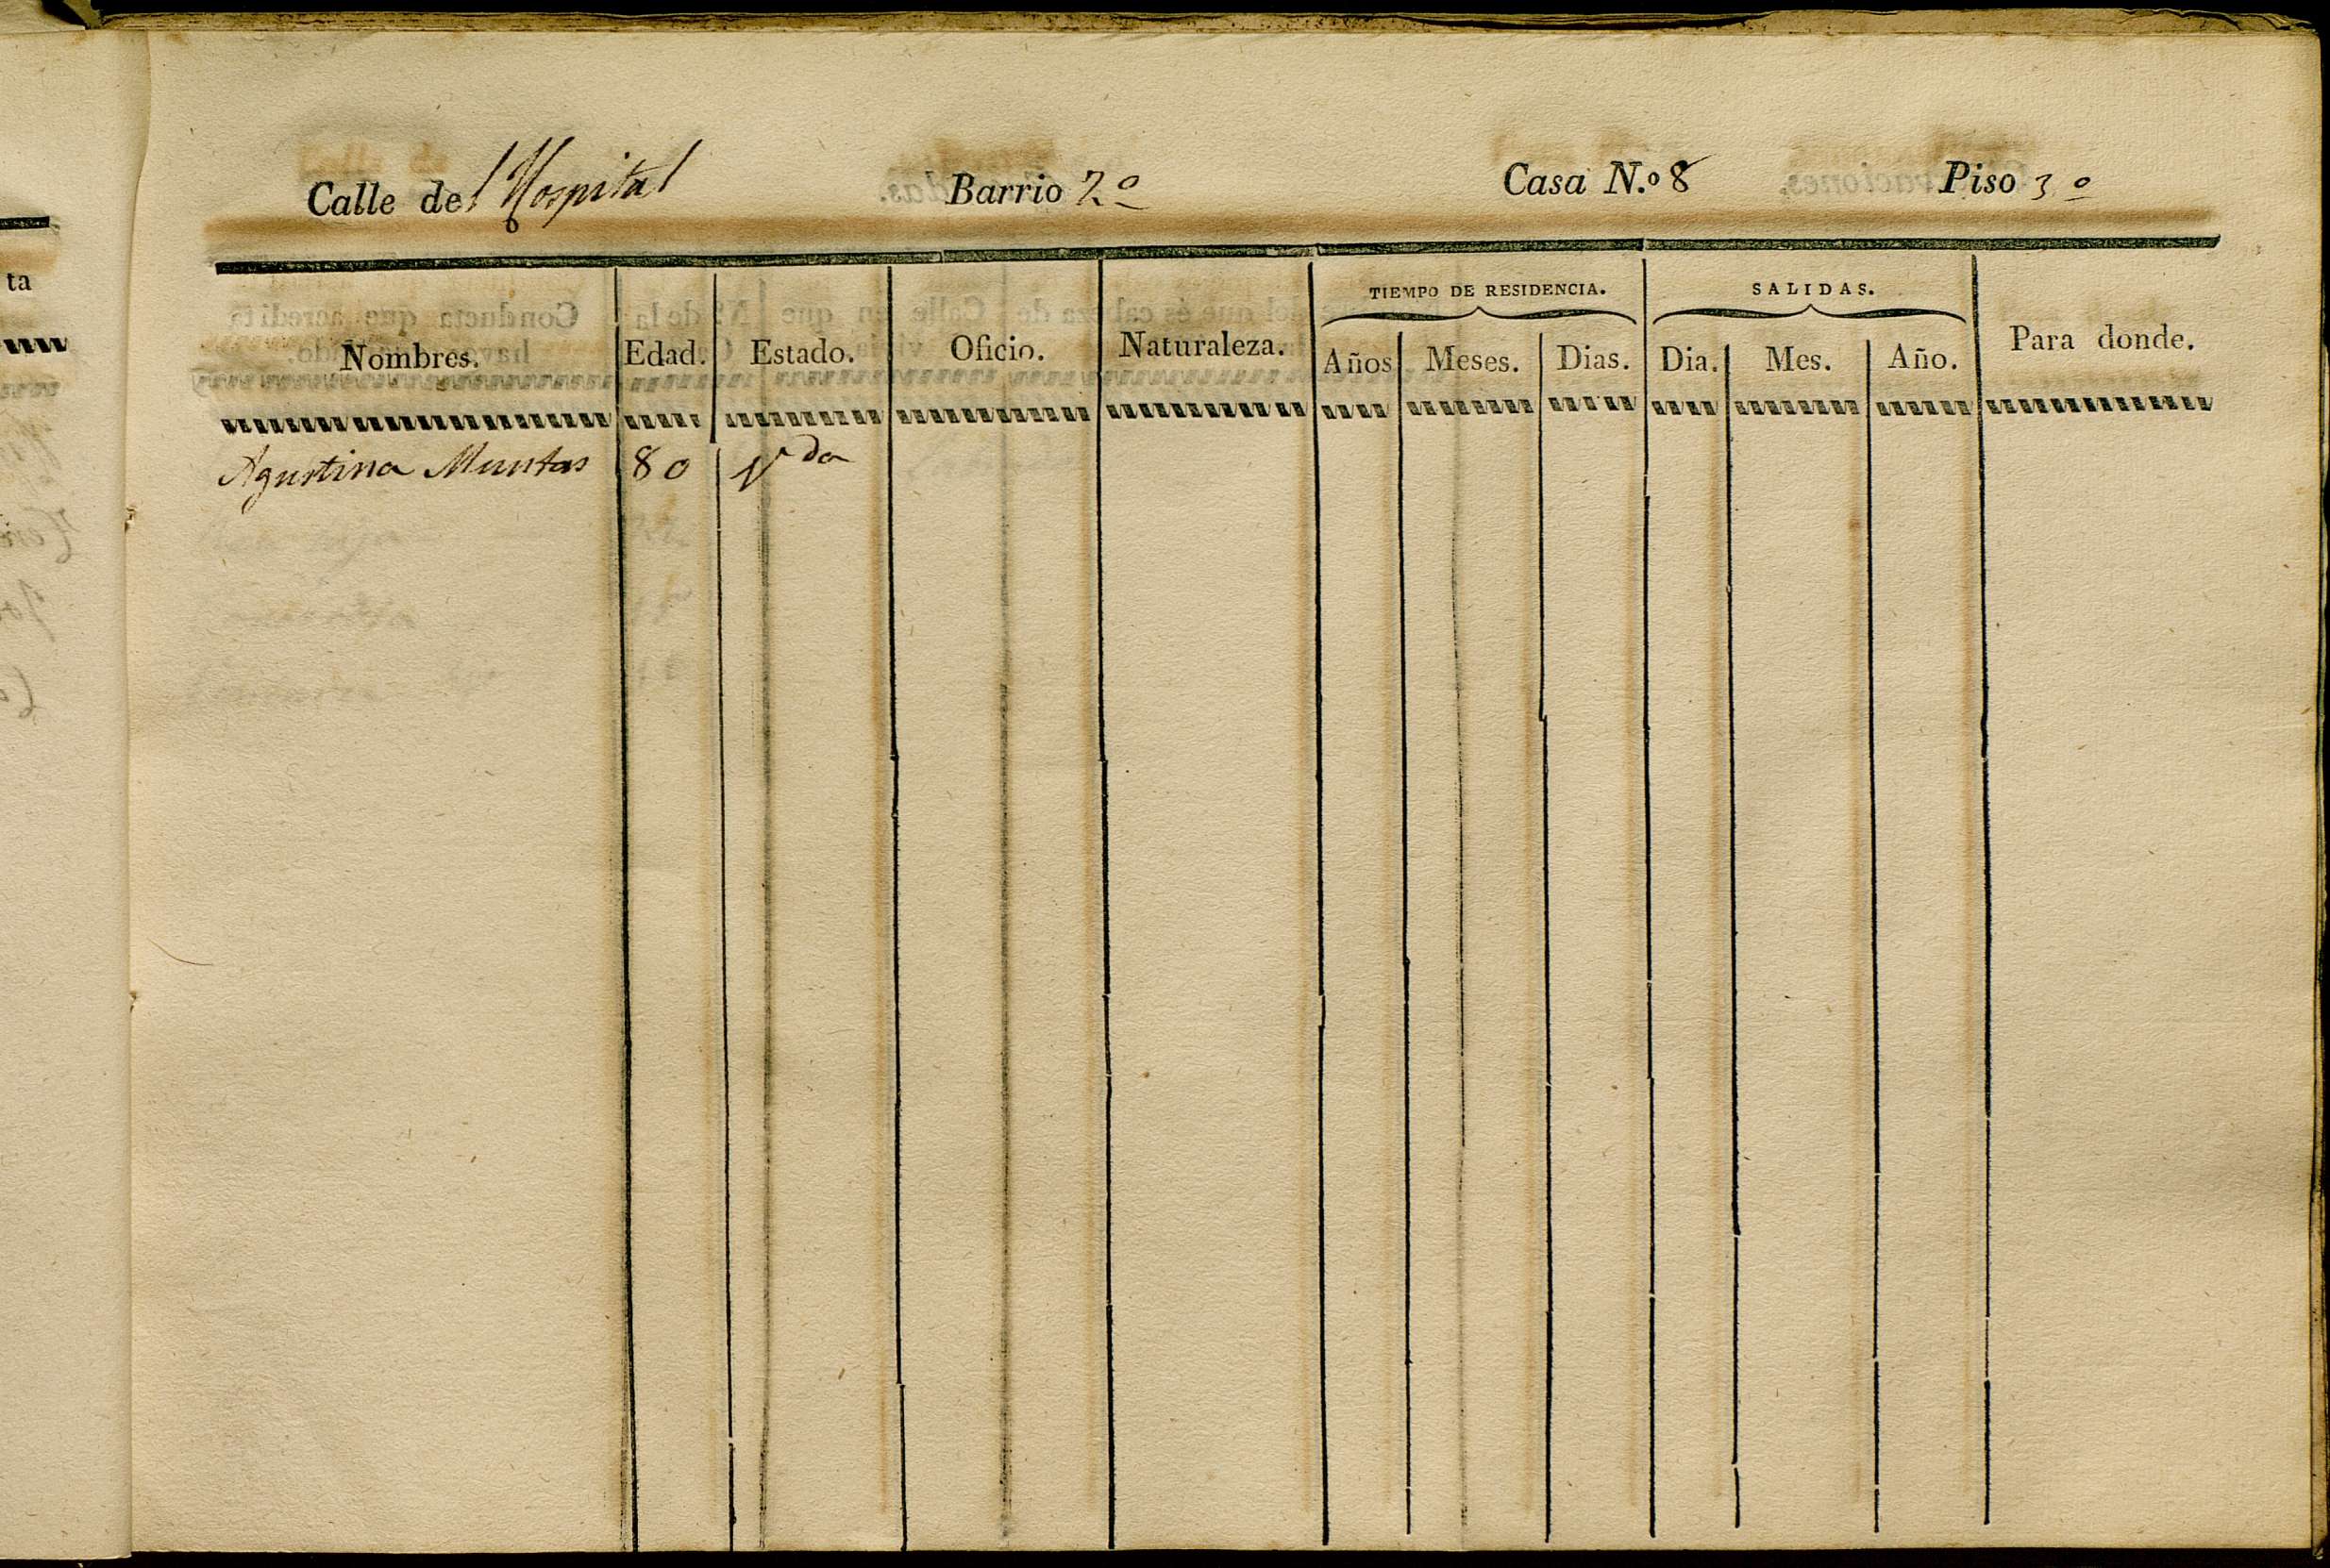 Calle del Hospital Barrio 2º Casa N.º 8 Piso 3º
TIEMPO DE RESIDENCIA. SALIDAS.
Nombres. Edad. Estado. Oficio. Naturaleza. Años Meses. Dias. Dia. Mes. Año. Para donde.
Agustina Muntas 80 Vda
ta